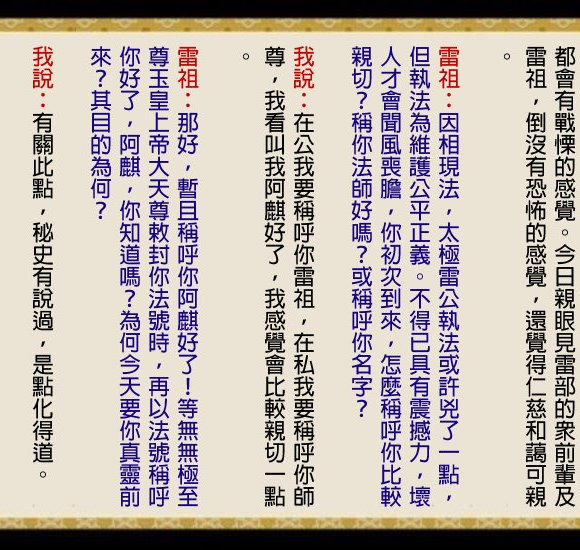 都會有戰慄的感覺。今日親眼見雷部的衆前輩及
雷祖，倒沒有恐怖的感覺，還覺得仁慈和藹可親
。
雷祖：因相現法，太極雷公執法或許兇了一點，
但執法為維護公平正義。不得已具有震撼力，壞
人才會聞風喪膽，你初次到來，怎麼稱呼你比較
親切？稱你法師好嗎？或稱呼你名字？
我說：在公我要稱呼你雷祖，在私我要稱呼你師
尊，我看叫我阿麒好了，我感覺會比較親切一點
。
雷祖：那好，暫且稱呼你阿麒好了！等無無極至
尊玉皇上帝大天尊敕封你法號時，再以法號稱呼
你好了，阿麒，你知道嗎？為何今天要你真靈前
來？其目的為何？
我說：有關此點，秘史有說過，是點化得道。